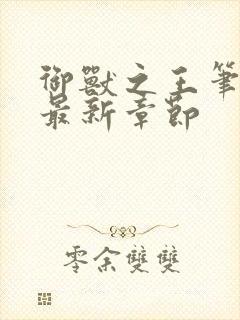 御獸之王筆
最新章節
零余雙雙